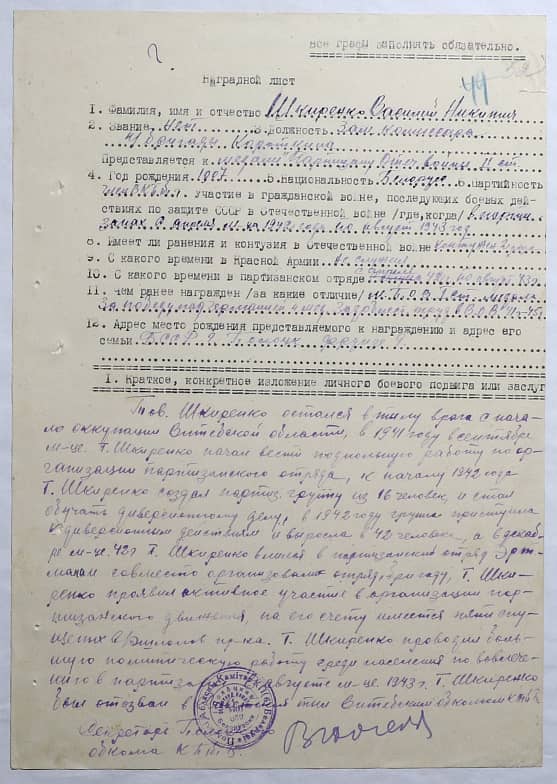 все графы заполнять обязательно.
Наградной лист
49
1. Фамилия, имя и отчество Шкиренко Василий Никитич
2. Звание нет 3. Должность Зам комиссара
бригады Короткина
Представляется к медали "Партизану Отеч. войны II ст.
4. Год рождения 1907 г. 5. Национальность Белорус 6. Партийность
член ВКП/б/ 7. Участие в гражданской войне, последующих боевых дей-
ствиях по защите СССР в Отечественной войне /где, когда/ в партиз-
8. Имеет ли ранения и контузия в Отечественной войне контужен
9. С какого времени в Красной Армии не служил
10. С какого времени в партизанском отряде с апреля 42г. по август 43г.
11. Чем ранее награжден /за какие отличие/
За победу над Германией
12. Адрес место рождения представляемого к награждению и адрес его
семьи БССР г. Полоцк
I. Краткое, конкретное изложение личного боевого подвига или заслуг
Тов. Шкиренко остался в тылу врага с нача-
ло оккупации Витебской области, в 1941 году в сентябре
м-це. Т. Шкиренко начал вести подпольную работу по ор-
ганизации партизанского отряда, к началу 1942 года
Т. Шкиренко создал партиз. группу из 16 человек и стал
обучать диверсионному делу, в 1942 году группа приступила
к диверсионным действиям и выросла в 42 человек, а в декаб-
ре м-це 42г Т. Шкиренко влился в партизанский отряд
совместо организовали отряд бригаду, Т. Шки-
ренко проявил активное участие в организации пар-
тизанского движения, на его счету имеется пять спу-
щеных в/эшелонов пр-ка. Т. Шкиренко проводил боль-
шую политическую работу среди населения по вовлече-
нию в партиза августе м-це 1943г. Т. Шкиренко
был отозван в Витебский обком КП/б/Б
Секретарь
обкома КП/б/Б